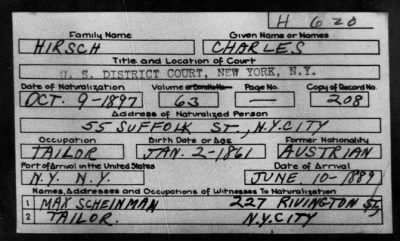 H 620
Family Name Given Name or Names
HIRSCH CHARLES
Title and Location of Court
U. S. DISTRICT COURT, NEW YORK, N.Y.
Date of Naturalization Volume or Bundle No. Page No. Copy of Record No.
OCT. 9-1897 63 — 208
Address of Naturalized Person
55 SUFFOLK ST., N.Y.CITY
Occupation Birth Date or Age Former Nationality
TAILOR JAN. 2-1861 AUSTRIAN
Port of Arrival in the United States Date of Arrival
N.Y. N.Y. JUNE. 10-1889
Names, Addresses and Occupations of Witnesses To Naturalization
1 MAX SCHEINMAN 227 RIVINGTON ST.,
2 TAILOR. N.Y.CITY